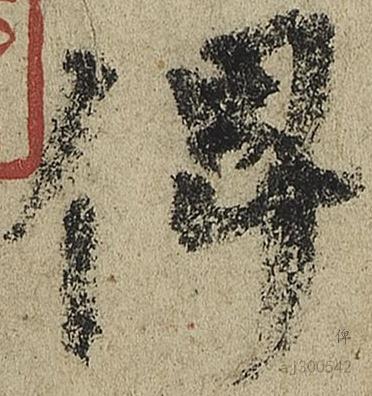 俾
俾
aj300542